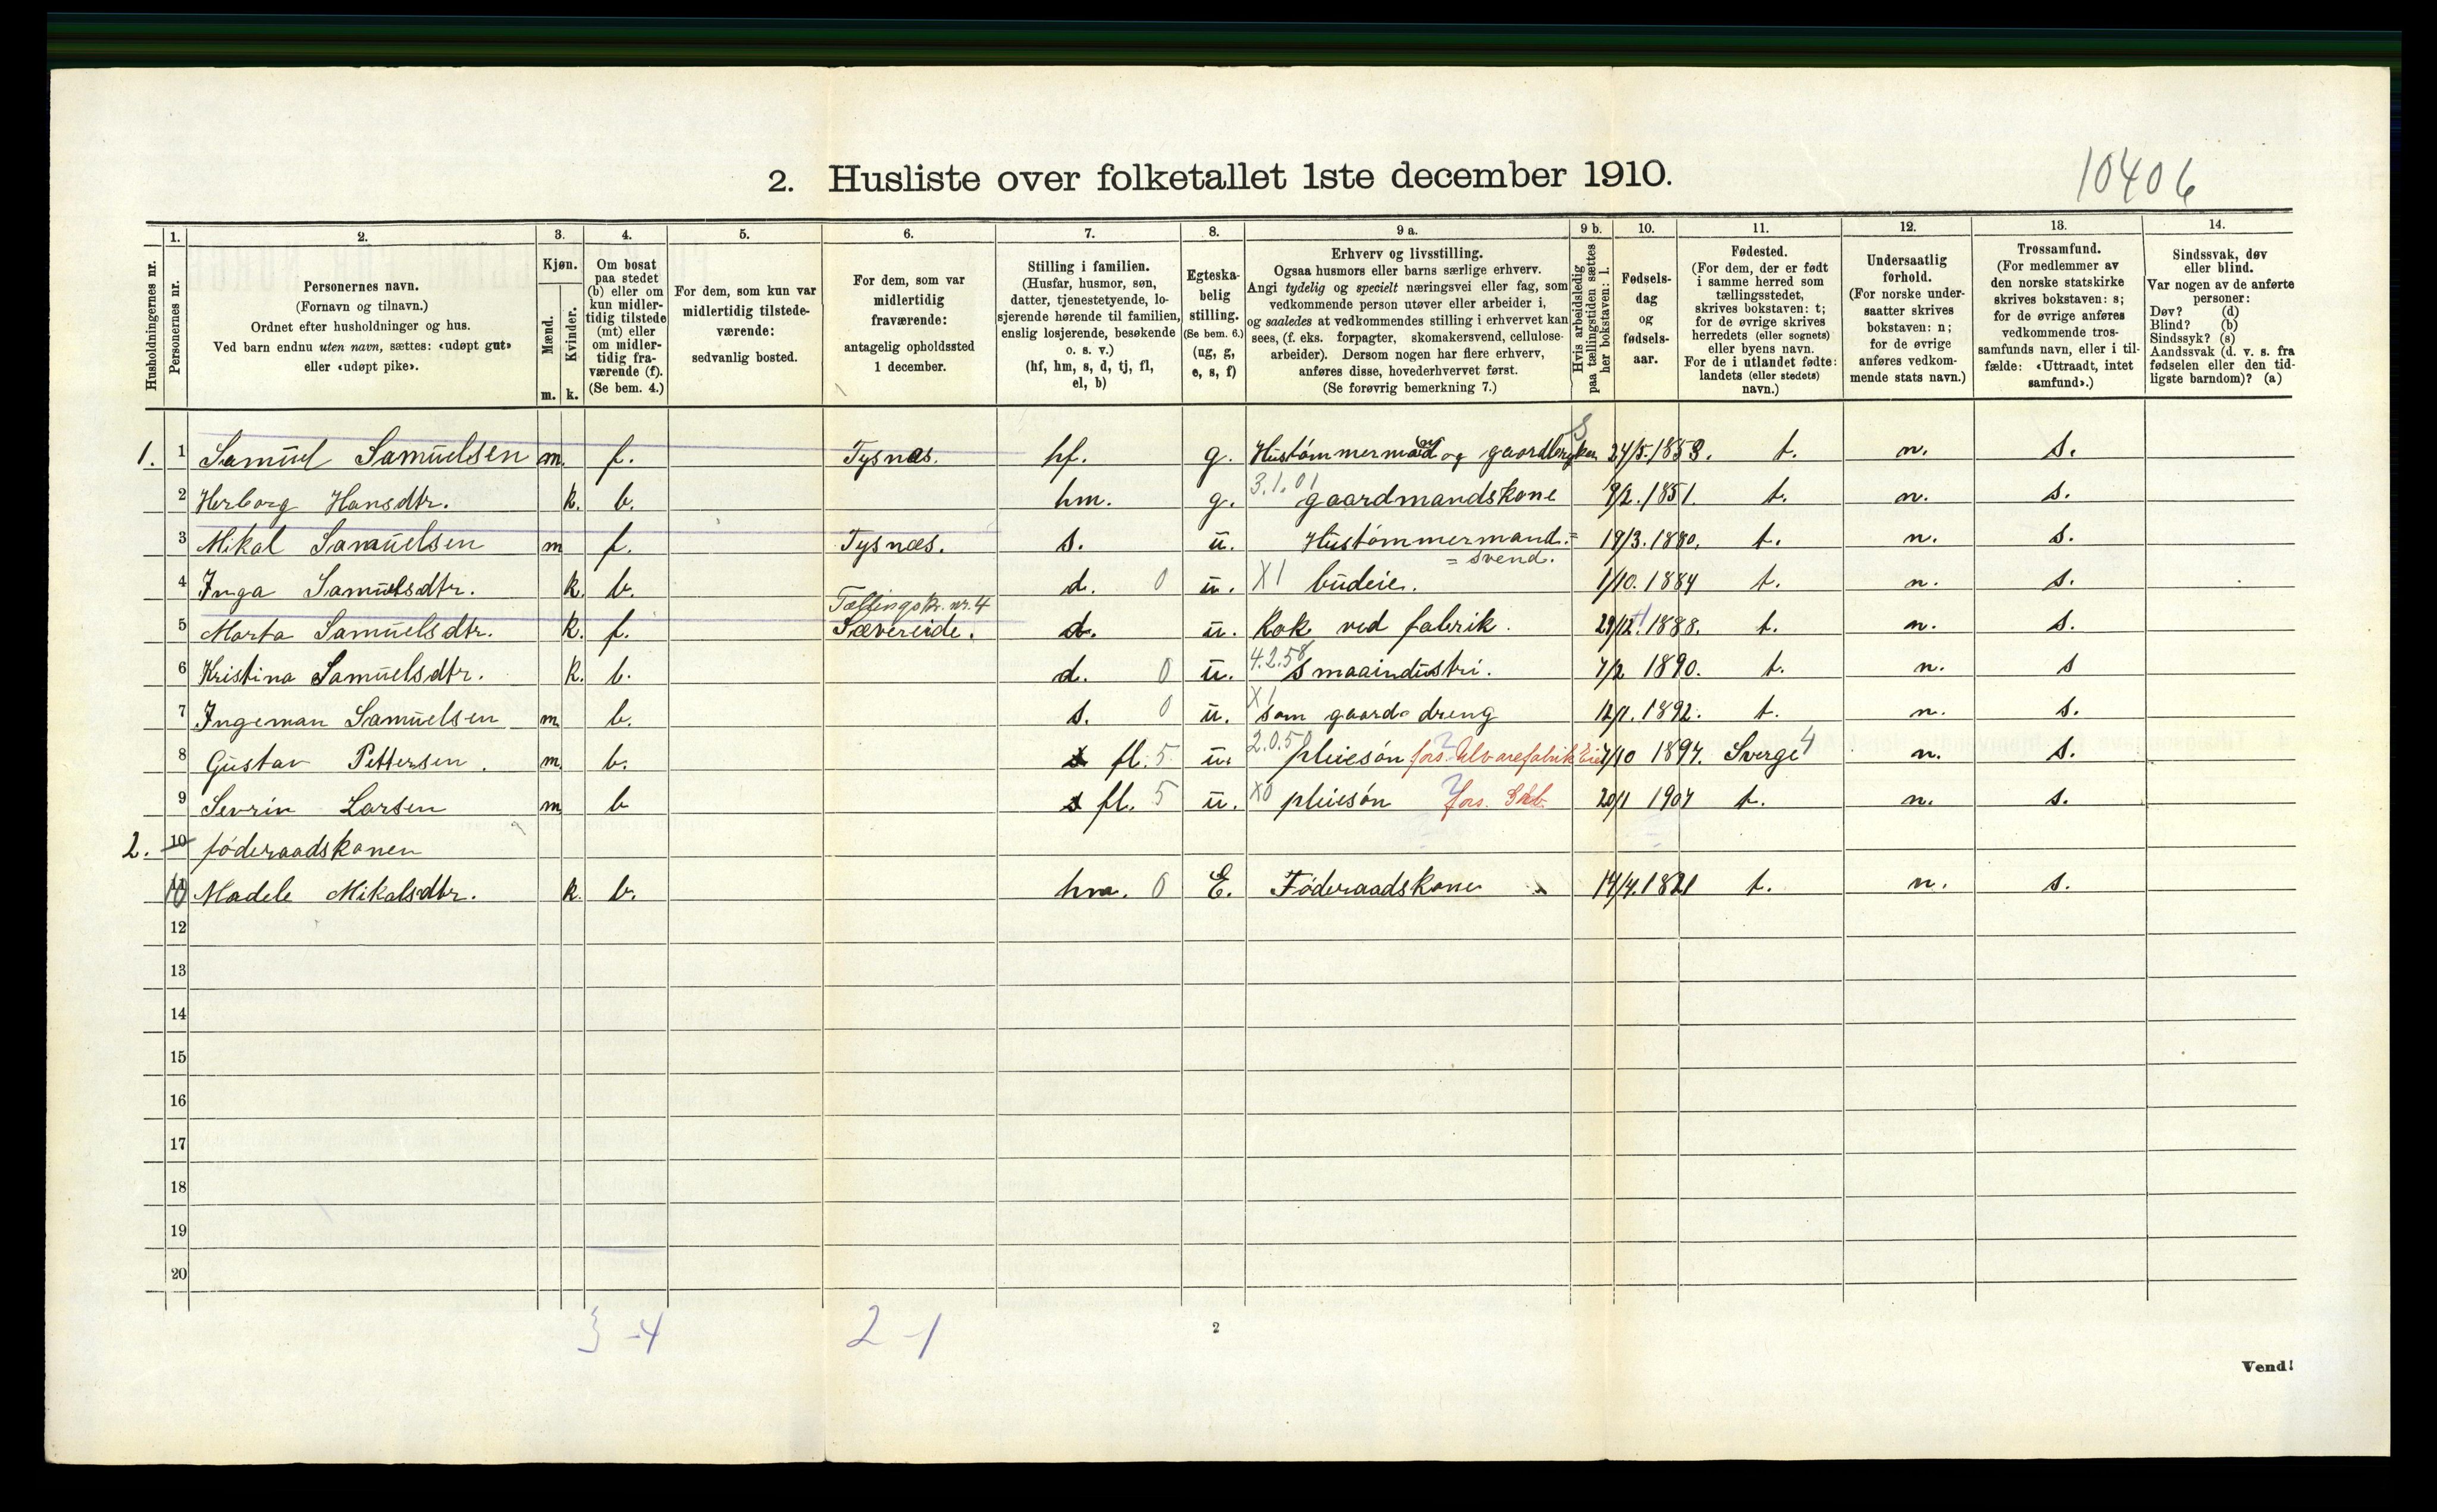 10406
2. Husliste over folketallet 1ste december 1910.
Husholdningernes nr.
1. Personernes nr.
2. Personernes navn. (Fornavn og tilnavn.) Ordnet efter husholdninger og hus. Ved barn endnu uten navn, sættes: «udøpt gut» eller «udøpt pike».
3. Kjøn. Mænd. m. Kvinder. k.
4. Om bosat paa stedet (b) eller om kun midlertidig tilstede (mt) eller om midlertidig fraværende (f). (Se bem. 4.)
5. For dem, som kun var midlertidig tilstedeværende: sedvanlig bosted.
6. For dem, som var midlertidig fraværende: antagelig opholdssted 1 december.
7. Stilling i familien. (Husfar, husmor, søn, datter, tjenestetyende, losjerende hørende til familien, enslig losjerende, besøkende o. s. v.) (hf, hm, s, d, tj, fl, el, b)
8. Egteskabelig stilling. (Se bem. 6.) (ug, g, e, s, f)
9 a. Erhverv og livsstilling. Ogsaa husmors eller barns særlige erhverv. Angi tydelig og specielt næringsvei eller fag, som vedkommende person utøver eller arbeider i, og saaledes at vedkommendes stilling i erhvervet kan sees, (f. eks. forpagter, skomakersvend, cellulosearbeider). Dersom nogen har flere erhverv, anføres disse, hovederhvervet først. (Se forøvrig bemerkning 7.)
9 b. Hvis arbeidsledig paa tællingstiden sættes her bokstaven: l.
10. Fødselsdag og fødselsaar.
11. Fødested. (For dem, der er født i samme herred som tællingsstedet, skrives bokstaven: t; for de øvrige skrives herredets (eller sognets) eller byens navn. For de i utlandet fødte: landets (eller stedets) navn.)
12. Undersaatlig forhold. (For norske undersaatter skrives bokstaven: n; for de øvrige anføres vedkommende stats navn.)
13. Trossamfund. (For medlemmer av den norske statskirke skrives bokstaven: s; for de øvrige anføres vedkommende trossamfunds navn, eller i tilfælde: «Uttraadt, intet samfund».)
14. Sindssvak, døv eller blind. Var nogen av de anførte personer: Døv? (d) Blind? (b) Sindssyk? (s) Aandssvak (d. v. s. fra fødselen eller den tidligste barndom)? (a)
1. 1 Samuel Samuelsen m. f. Tysnæs. hf. g. Hustømmermand og gaardbruker 24/5.1858. t. n. s.
2 Herborg Hansdtr. k. b. hm. g. 3.1.01 gaardmandskone 9/2.1851. t. n. s.
3 Mikal Samuelsen m f. Tysnæs. s. u. Hustømmermand.= =svend. 19/3.1880. t. n. s.
4 Inga Samuelsdtr. k. b. d. 0 u. X1 budeie. 1/10.1884 t. n. s.
Tællingskr. nr. 4
5 Marta Samuelsdtr. k. f. Sævereide. d. u. Kok ved fabrik. 29/12.1888. t. n. s.
6 Kristina Samuelsdtr. k. b. d. 0 u. 4.2.58 smaaindustri. 7/2 1890. t. n. s
7 Ingeman Samuelsen m b. s. 0 u. X1 som gaardsdreng 12/1.1892. t. n. s.
8 Gustav Pettersen. m. b. s fl. 5 u. 2.0.50 pleiesøn fors. Ulvarefabrik Eier 7/10 1897. Sverge 4 n. s.
9 Sevrin Larsen m b s fl. 5 u. X0 pleiesøn fors. 20/1 1904 t. n. s.
2. 10 føderaadskonen
11 10 Madele Mikalsdtr. k. b. hm. 0 E. Føderaadskone 14/4.1821 t. n. s.
12
13
14
15
16
17
18
19
20
3 -4 2 -1
2
Vend!